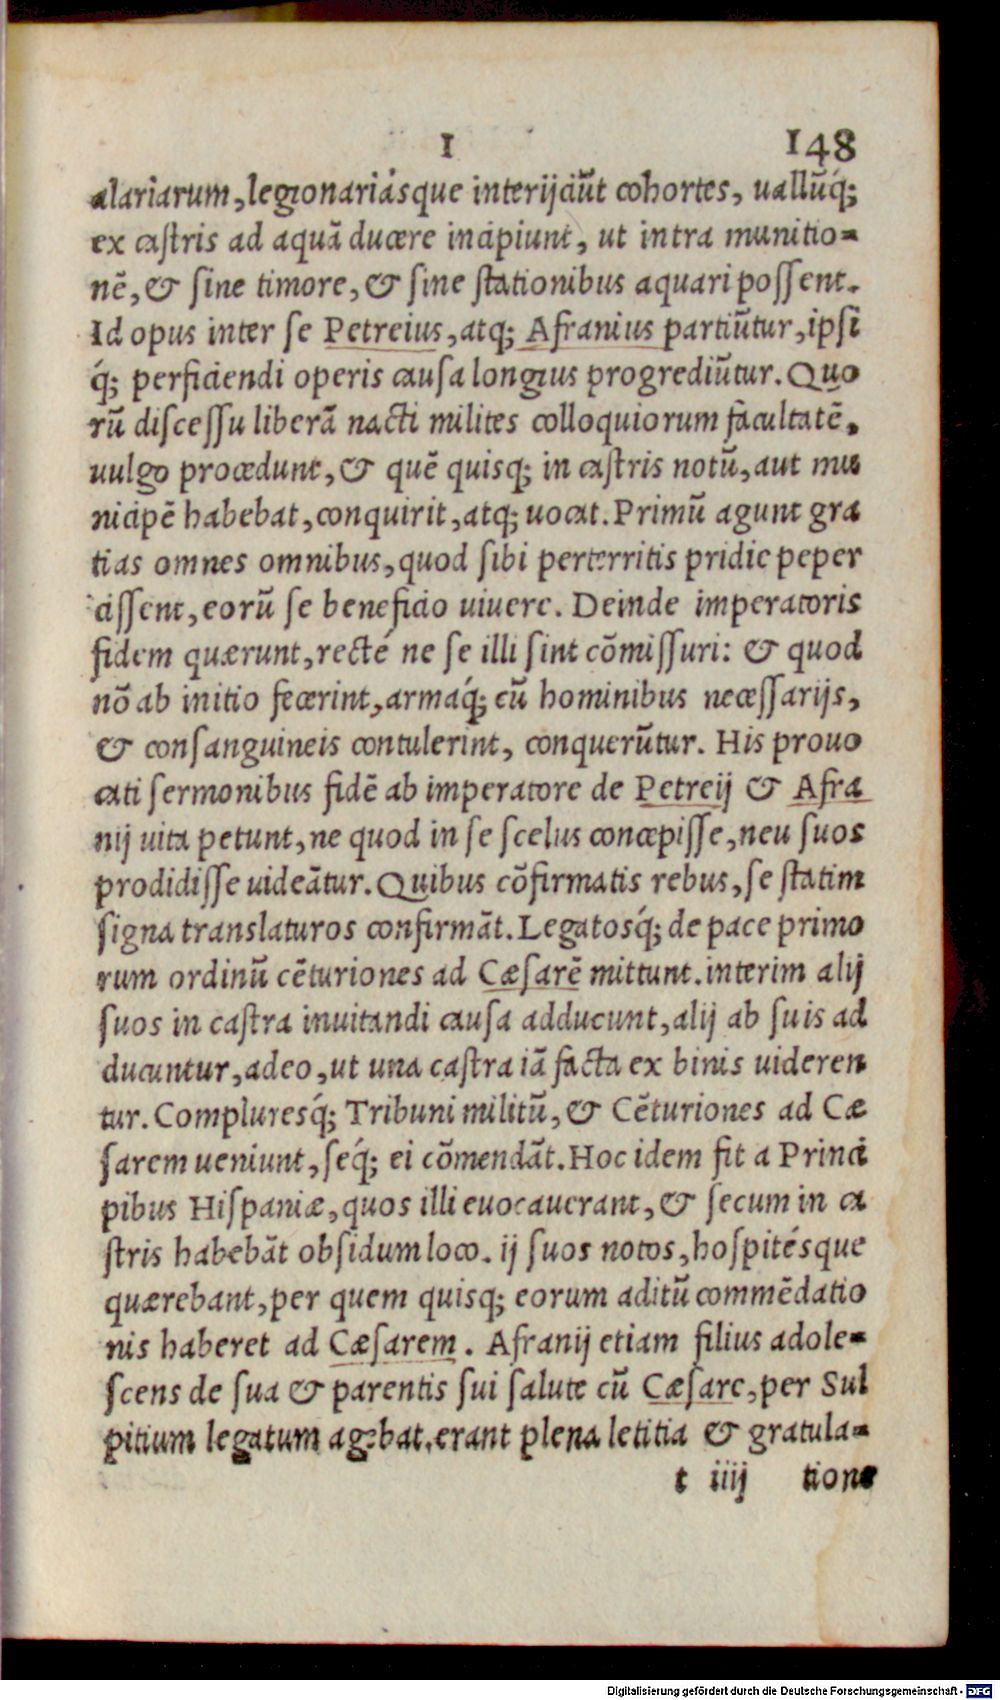 I 148
alariarum, legionariásque interijciũt cohortes, uallũq́;
ex castris ad aquã ducere incipiunt, ut intra munitio-
nẽ, & sine timore, & sine stationibus aquari possent.
Id opus inter se Petreius, atq; Afranius partiũtur, ipsi
q́; perficiendi operis causa longius progrediũtur. Quo
rũ discessu liberã nacti milites colloquiorum facultatẽ,
uulgo procedunt, & quẽ quisq; in castris notũ, aut mu
nicipẽ habebat, conquirit, atq; uocat. Primũ agunt gra
tias omnes omnibus, quod sibi perterritis pridie peper
cissent, eorũ se beneficio uiuere. Deinde imperatoris
fidem quærunt, recté ne se illi sint cõmissuri: & quod
nõ ab initio fecerint, armaq́; cũ hominibus necessarijs,
& consanguineis contulerint, conquerũtur. His prouo
cati sermonibus fidẽ ab imperatore de Petreij & Afra
nij uita petunt, ne quod in se scelus concepisse, neu suos
prodidisse uideãtur. Quibus cõfirmatis rebus, se statim
signa translaturos confirmãt. Legatosq́; de pace primo
rum ordinũ cẽturiones ad Cæsarẽ mittunt. interim alij
suos in castra inuitandi causa adducunt, alij ab suis ad
ducuntur, adeo, ut una castra iã facta ex binis uideren
tur. Compluresq́; Tribuni militũ, & Cẽturiones ad Cæ
sarem ueniunt, seq́; ei cõmendãt. Hoc idem fit a Princi
pibus Hispaniæ, quos illi euocauerant, & secum in ca
stris habebãt obsidum loco. ij suos notos, hospitésque
quærebant, per quem quisq; eorum aditũ commẽdatio
nis haberet ad Cæsarem. Afranij etiam filius adole-
scens de sua & parentis sui salute cũ Cæsare, per Sul
pitium legatum agebat. erant plena letitia & gratula-
t iiij tione
Digitalisierung gefördert durch die Deutsche Forschungsgemeinschaft - DFG